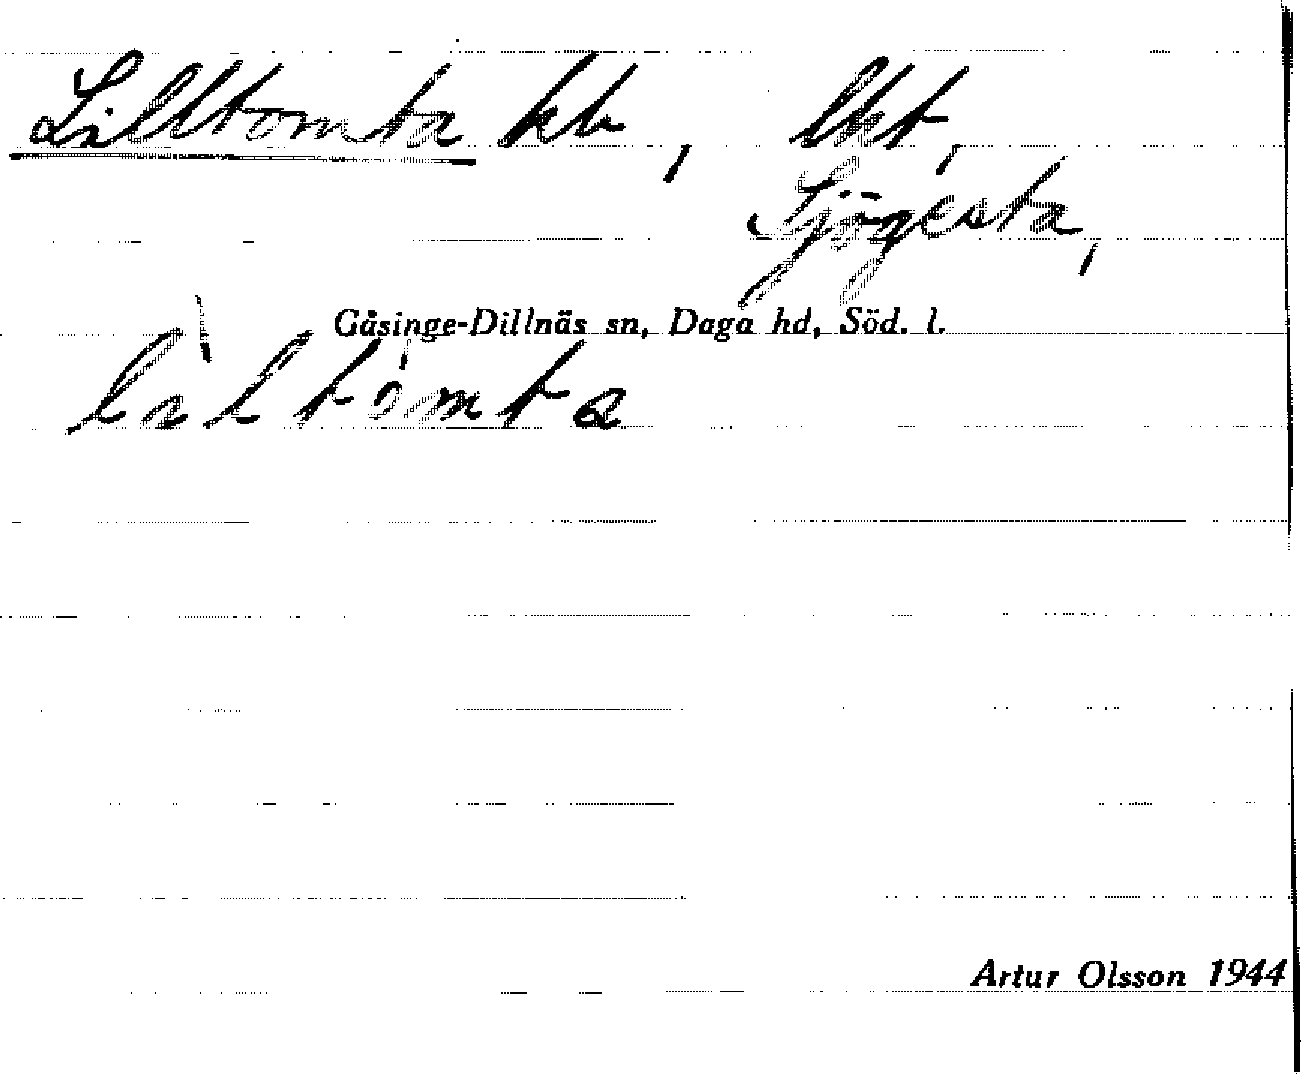 Lilltomta kb, lht,
Sjögesta,
Gåsinge-Dillnäs sn, Daga hd, Söd. l.
Artur Olsson 1944